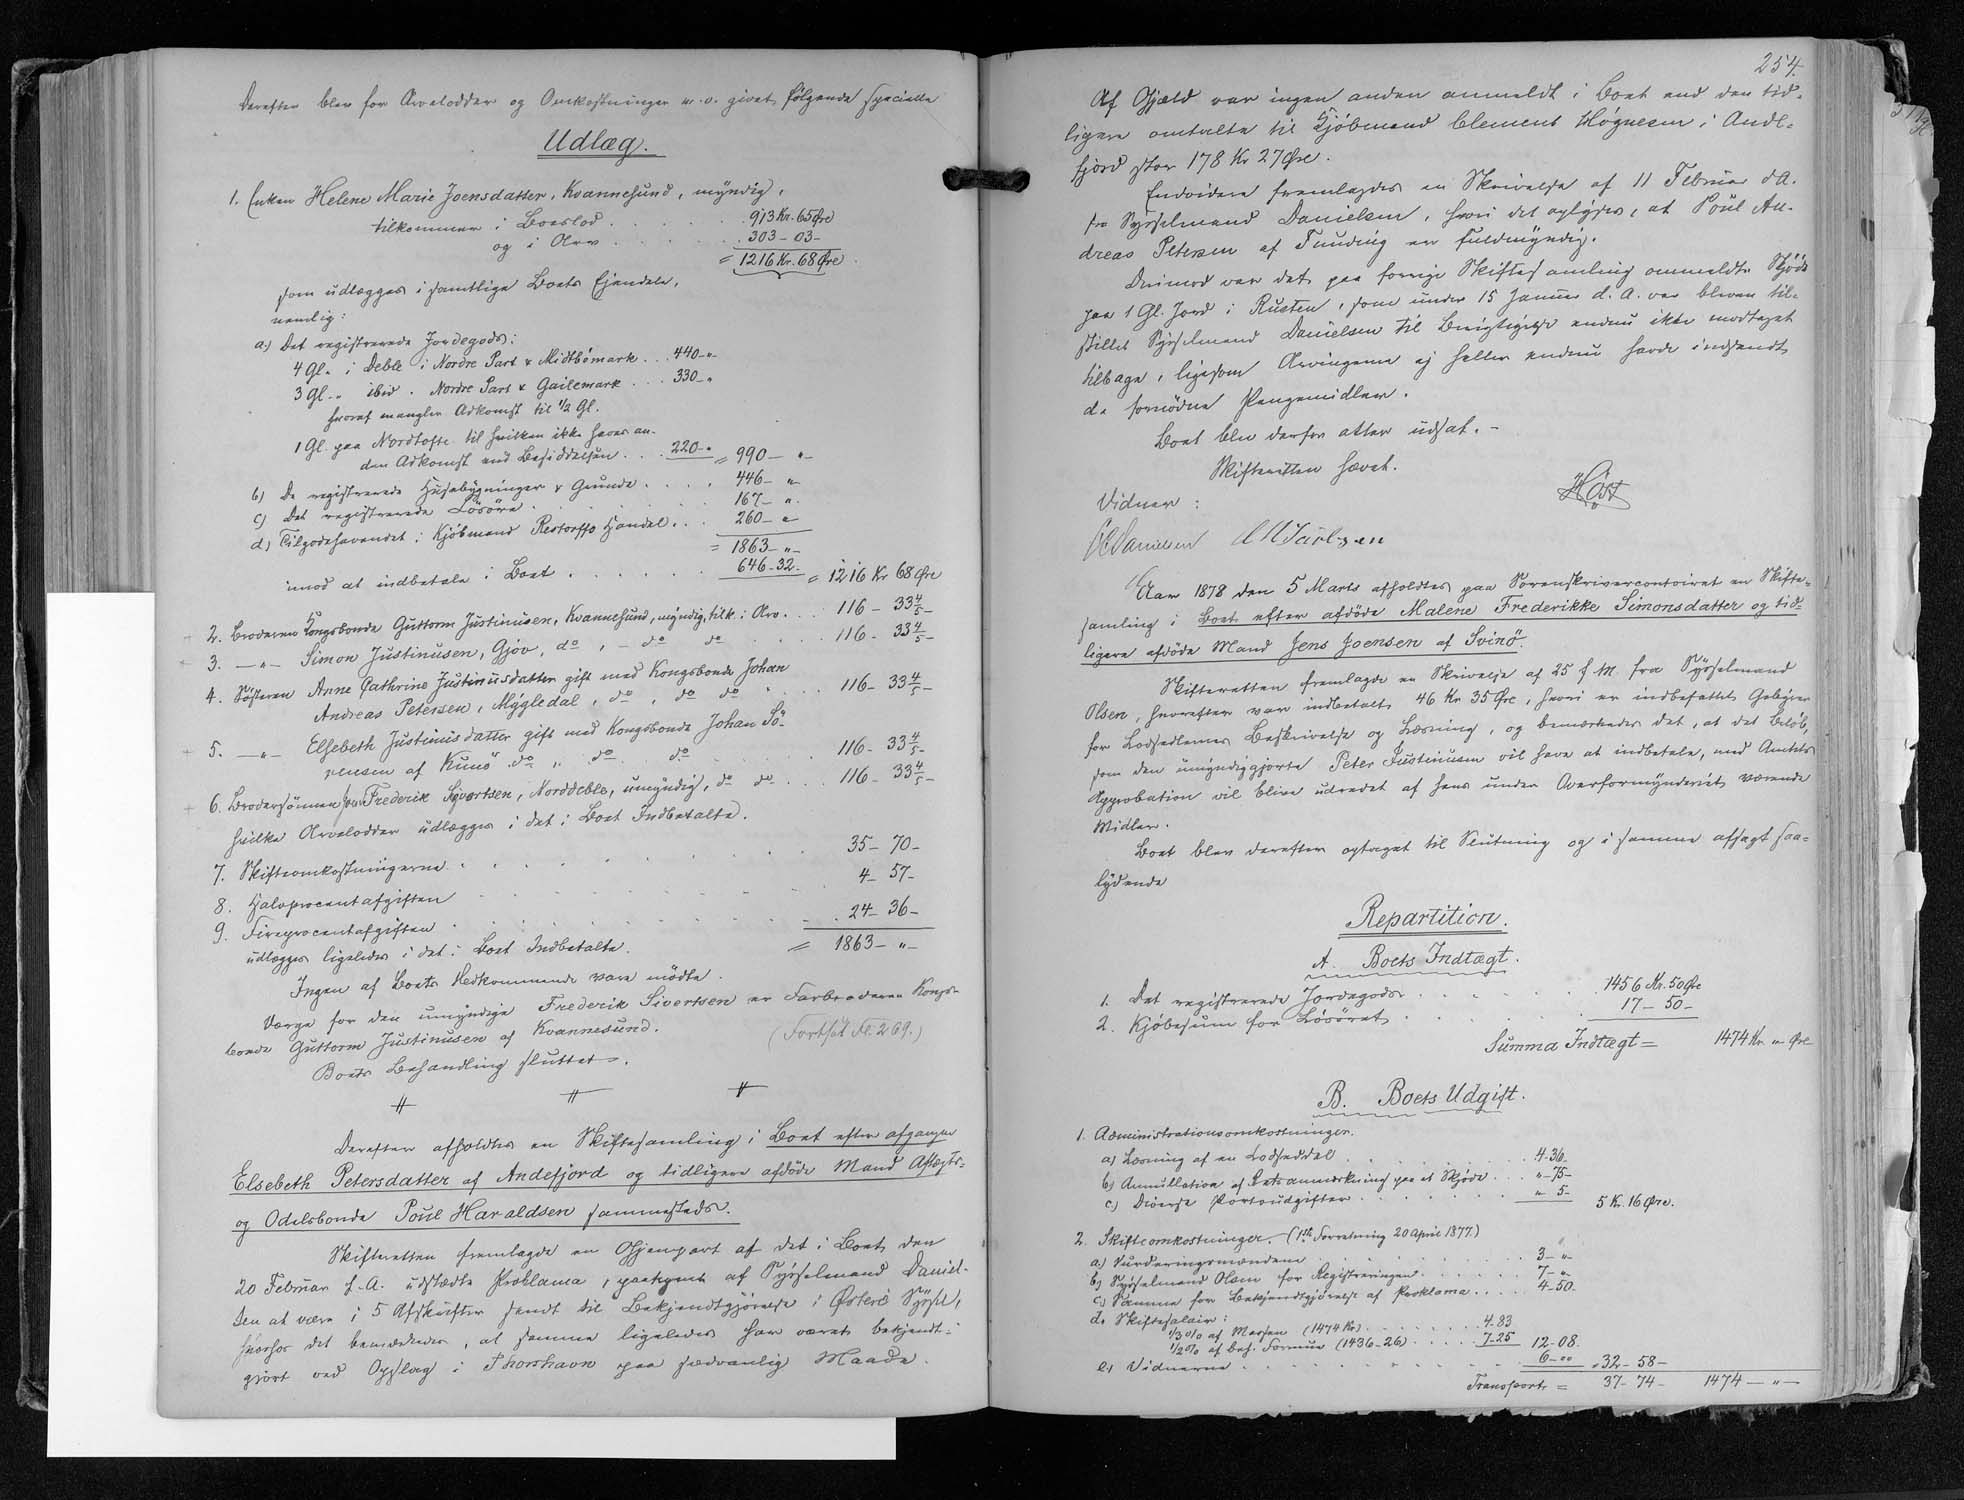 Derefter blev for Arvelodder og Omkostninger m.v. givet følgende specielle
Udlæg.
1. Enken Helene Marie Joensdatter, Kvannesund, myndig,
tilkommer i Boeslod . . . . 913 Kr. 65 Øre
og i Arv . . . . 303 - 03 -
= 1216 Kr. 68 Øre.
som udlægges i samtlige Boets Ejendele,
nemlig:
a.) Det registrerede Jordegods:
4 Gl. i Deble i Nordre Part & Midtbömark . . 440 - "
3 Gl. " ibid. Nordre Part & Gailemark . . . 330 - "
hvoraf mangler Adkomst til 1/2 Gl.
1 Gl. paa Nordtofte til hvilken ikke haves an-
den Adkomst end Besiddelsen . . . 220 - " = 990 - " -
b) De registrerede Husebygninger & Grunde . . . . 446 - " -
c) Det registrerede Lösöre . . . . 167 - " -
d) Tilgodehavendet i Kjöbmand Restorffs Handel . . . 260 - " -
= 1863 - " -
imod at indbetale i Boet . . . . 646 - 32 - = 1216 Kr 68 Øre
2. Broderen Kongsbonde Guttorm Justinusen, Kvannesund, myndig, tilk. i Arv . . . 116 - 33 4/5 -
3. - " - Simon Justinusen, Gjov, do , - do do . . . 116 - 33 4/5 -
4. Søsteren Anne Cathrine Justinusdatter gift med Kongsbonde Johan
Andreas Petersen, Mygledal, do , do do . . . 116 - 33 4/5 -
5. - " - Elsebeth Justinusdatter gift med Kongsbonde Johan Sö-
rensen af Kunö do " do do . . . 116 - 33 4/5 -
6. Brodersönnen Frederik Sivertsen, Norddeble, umyndig, do do . . 116 - 33 4/5 -
hvilke Arvelodder udlægges i det i Boet Indbetalte.
7. Skifteomkostningerne . . . . 35 - 70 -
8. Halvprocentafgiften . . . . 4 - 57 -
9. Fireprocentafgiften . . . . 24 - 36 -
udlægges ligeledes i det i Boet Indbetalte. = 1863 - " -
Ingen af Boets Vedkommende vare mödte.
Værge for den umyndige Frederik Sivertsen er Farbroderen Kongs-
bonde Guttorm Justinusen af Kvannesund. (Fortsat Fl. 269.)
Boets Behandling sluttet.
Derefter afholdtes en Skiftesamling i Boet efter afgangne
Elsebeth Petersdatter af Andefjord og tidligere afdöde Mand Aftægts-
og Odelsbonde Poul Haraldsen sammesteds.
Skifteretten fremlagde en Gjenpart af det i Boet den
20 Februar f. A. udstedte Proklama, paategnet af Sysselmand Daniel-
sen at være i 5 Afskrifter sendt til Bekjendtgjörelse i Østerö Syssel,
hvorhos det bemærkedes, at samme ligeledes har været bekjendt-
gjort ved Opslag i Thorshavn paa sædvanlig Maade.
254.
Af Gjæld var ingen anden anmeldt i Boet end den tid-
ligere omtalte til Kjöbmand Clement Högnesen i Ande-
fjord stor 178 Kr 27 Øre.
Endvidere fremlagdes en Skrivelse af 11 Februar d.A.
fra Sysselmand Danielsen, hvori det oplyses, at Poul An-
dreas Petersen af Funding er fuldmyndig.
Derimod var det paa forrige Skiftesamling ommeldte Skjöde
paa 1 Gl. Jord i Rusten, som under 15 Januar d. A. var bleven til-
stillet Sysselmand Danielsen til Berigtigelse endnu ikke modtaget
tilbage, ligesom Arvingerne ej heller endnu havde indsendt
de fornödne Pengemidler.
Boet blev derfor atter udsat. -
Skifteretten hævet.
Høst
Vidner:
Danielsen
Aar 1878 den 5 Marts afholdtes paa Sorenskrivercontoiret en Skifte-
samling i Boet efter afdöde Malene Frederikke Simonsdatter og tid-
ligere afdöde Mand Jens Joensen af Svinö.
Skifteretten fremlagde en Skrivelse af 25 f. M. fra Sysselmand
Olsen, hvorefter var indbetalt 46 Kr 35 Øre, hvori er indbefattet Gebyrer
for Lodsedlernes Beskrivelse og Læsning, og bemærkedes det, at det Belöb,
som den umyndiggjorte Peter Justinusen vil have at indbetale, med Amtets
Approbation vil blive udredet af hans under Overformynderiet værende
Midler.
Boet blev derefter optaget til Slutning og i samme afsagt saa-
lydende
Repartition.
A. Boets Indtægt.
1. Det registrerede Jordegods . . . . 1456 Kr. 50 Øre
2. Kjöbesum for Lösöret . . . . 17 - 50 -
Summa Indtægt = 1474 Kr. " Øre
B. Boets Udgift.
1. Administrationsomkostninger.
a) Læsning af en Lodseddel . . . . 4 - 36 -
b) Annullation af Retsanmærkning paa et Skjöde . . . " - 75 -
c) Diverse Portoudgifter . . . . " 5 - 5 Kr. 16 Øre.
2. Skifteomkostninger. (1ste Forretning 20 April 1877.)
a) Vurderingsmændene . . . . 3 - " -
b) Sysselmand Olsen for Registreringen . . . . 7 - " -
c) Samme for Bekjendtgjörelse af Proklama . . . . 4 - 50 -
d. Skiftesalair:
1/3 % af Massen (1474 Kr) . . . . 4.83
1/2 % af beh. Formue (1436-26) . . . . 7-25 12 - 08.
e) Vidnerne . . . . 6 - 00 " 32 - 58 -
Transport = 37 - 74 - 1474 - " -